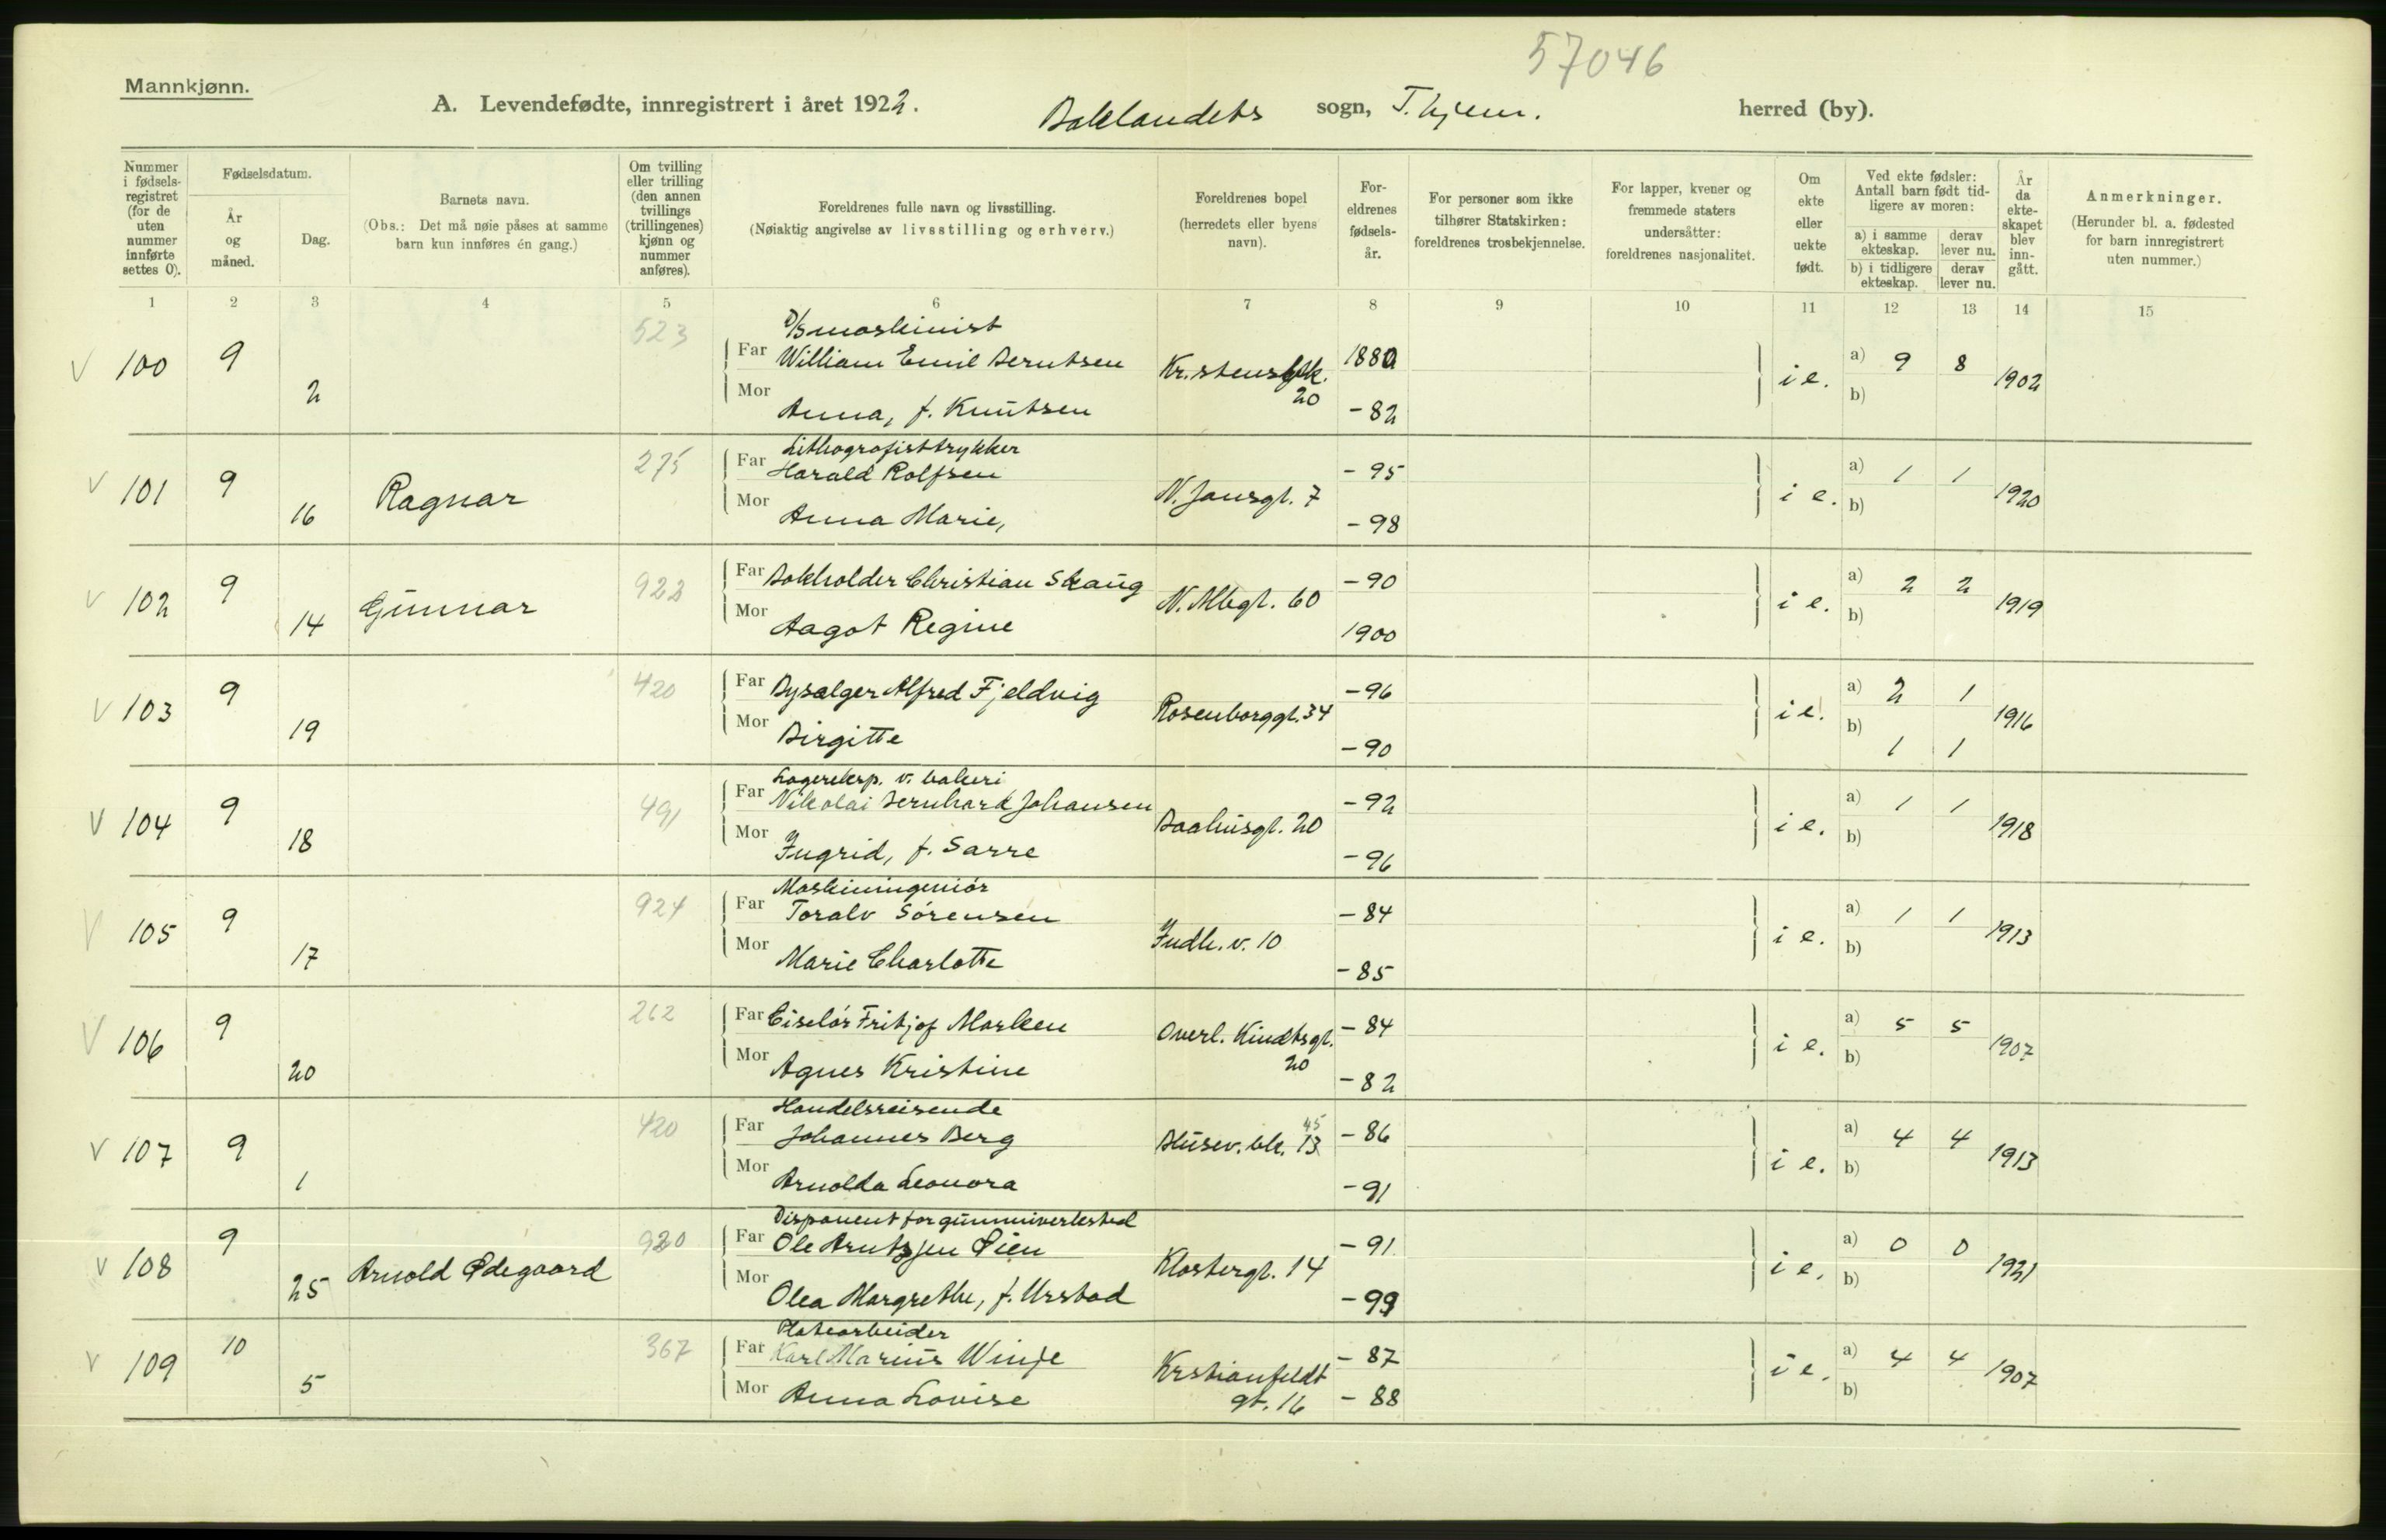 57046
Mannkjønn.
A. Levendefødte, innregistrert i året 1922. Baklandets sogn, T.hjem. herred (by).
Nummer i fødselsregistret (for de uten nummer innførte settes 0).
Fødselsdatum.
År og måned.
Dag.
Barnets navn.
(Obs.: Det må nøie påses at samme barn kun innføres én gang.)
Om tvilling eller trilling (den annen tvillings (trillingenes) kjønn og nummer anføres).
Foreldrenes fulle navn og livsstilling.
(Nøiaktig angivelse av livsstilling og erhverv.)
Foreldrenes bopel
(herredets eller byens navn).
Foreldrenes fødselsår.
For personer som ikke tilhører Statskirken: foreldrenes trosbekjennelse.
For lapper, kvener og fremmede staters undersåtter: foreldrenes nasjonalitet.
Om ekte eller uekte født.
Ved ekte fødsler: Antall barn født tidligere av moren:
a) i samme ekteskap. derav lever nu.
b) i tidligere ekteskap. derav lever nu.
År da ekteskapet blev inngått.
Anmerkninger.
(Herunder bl. a. fødested for barn innregistrert uten nummer.)
1 2 3 4 5 6 7 8 9 10 11 12 13 14 15
D/S maskinist
V 100 9 2 523 Far William Emil Berntsen Kr.stensbk. 20 1880 i e. a) 9 8 1902
Mor Anna, f. Knutsen -82 b)
Lithografisttrykker
V 101 9 16 Ragnar 275 Far Harald Rolfsen N. Jansgt. 7 -95 i e. a) 1 1 1920
Mor Anna Marie, -98 b)
V 102 9 14 Gunnar 922 Far Bokholder Christian Skaug N. Allegt. 60 -90 i e. a) 2 2 1919
Mor Aagot Regine 1900 b)
V 103 9 19 420 Far Bysælger Alfred Fjeldvig Rosenborggt. 34 -96 i e. a) 2 1 1916
Mor Birgitte -90 b) 1 1
Lagereksp. v. bakeri
V 104 9 18 491 Far Nikolai Bernhard Johansen Baahusgt. 20 -92 i e. a) 1 1 1918
Mor Ingrid, f. Sarre -96 b)
Maskiningeniör
V 105 9 17 924 Far Toralv Sörensen Indh. v. 10 -84 i e. a) 1 1 1913
Mor Marie Charlotte -85 b)
V 106 9 20 262 Far Ciselör Fritjof Marken Overl. Kindtsgt. 20 -84 i e. a) 5 5 1907
Mor Agnes Kristine -82 b)
Handelsreisende
V 107 9 1 420 Far Johannes Berg Busev. bk. 13 45 -86 i e. a) 4 4 1913
Mor Arnolda Leonora -91 b)
Disponent for gummiverksted
V 108 9 25 Arnold Ødegaard 920 Far Ole Arntzen Øien Klostergt. 14 -91 i e. a) 0 0 1921
Mor Olea Margrethe, f. Urstad -99 b)
Platearbeider
V 109 10 5 367 Far Karl Marius Winje Kristianfeldt gt. 16 -87 i e. a) 4 4 1907
Mor Anna Lovise -88 b)